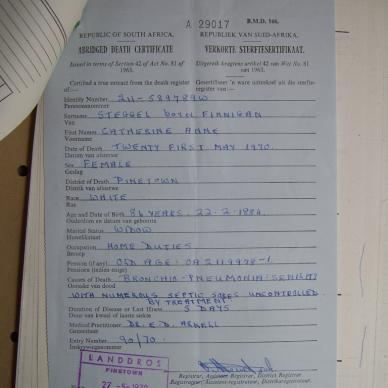 A 29017 B.M.D. 166.
REPUBLIC OF SOUTH AFRICA. REPUBLIEK VAN SUID-AFRIKA.
ABRIDGED DEATH CERTIFICATE VERKORTE STERFTESERTIFIKAAT.
Issued in terms of Section 42 of Act No. 81 of 1963. Uitgereik kragtens artikel 42 van Wet No. 81 van 1963.
Certified a true extract from the death register of:— Gesertifiseer 'n ware uittreksel uit die sterfteregister van:—
Identity Number 211-589789W
Persoonsnommer
Surname STEGGEL born FINNIGAN
Van
First Names CATHERINE ANNE
Voorname
Date of Death TWENTY FIRST MAY 1970.
Datum van afsterwe
Sex FEMALE
Geslag
District of Death PINETOWN
Distrik van afsterwe
Race WHITE
Ras
Age and Date of Birth 86 YEARS. 22-2-1884.
Ouderdom en datum van geboorte
Marital Status WIDOW
Huwelikstaat
Occupation HOME DUTIES
Beroep
Pension (if any) OLD AGE: OA 2119978-1
Pensioen (indien enige)
Causes of Death BRONCHIO-PNEUMONIA: SENILITY
Oorsake van dood
WITH NUMEROUS SEPTIC SORES UNCONTROLLED
BY TREATMENT.
Duration of Disease or Last Illness 5 DAYS
Duur van kwaal of laaste siekte
Medical Practitioner DR. E.D.
Geneesheer
Entry Number 90/70.
Inskrywingsnommer
LANDDROS
PINETOWN
27-5-1970
Registrar, Assistant Registrar, District Registrar.
Registrateur, Assistent-registrateur, Distriksregistrateur.